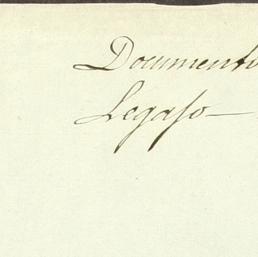 Documenti
Legaſo—